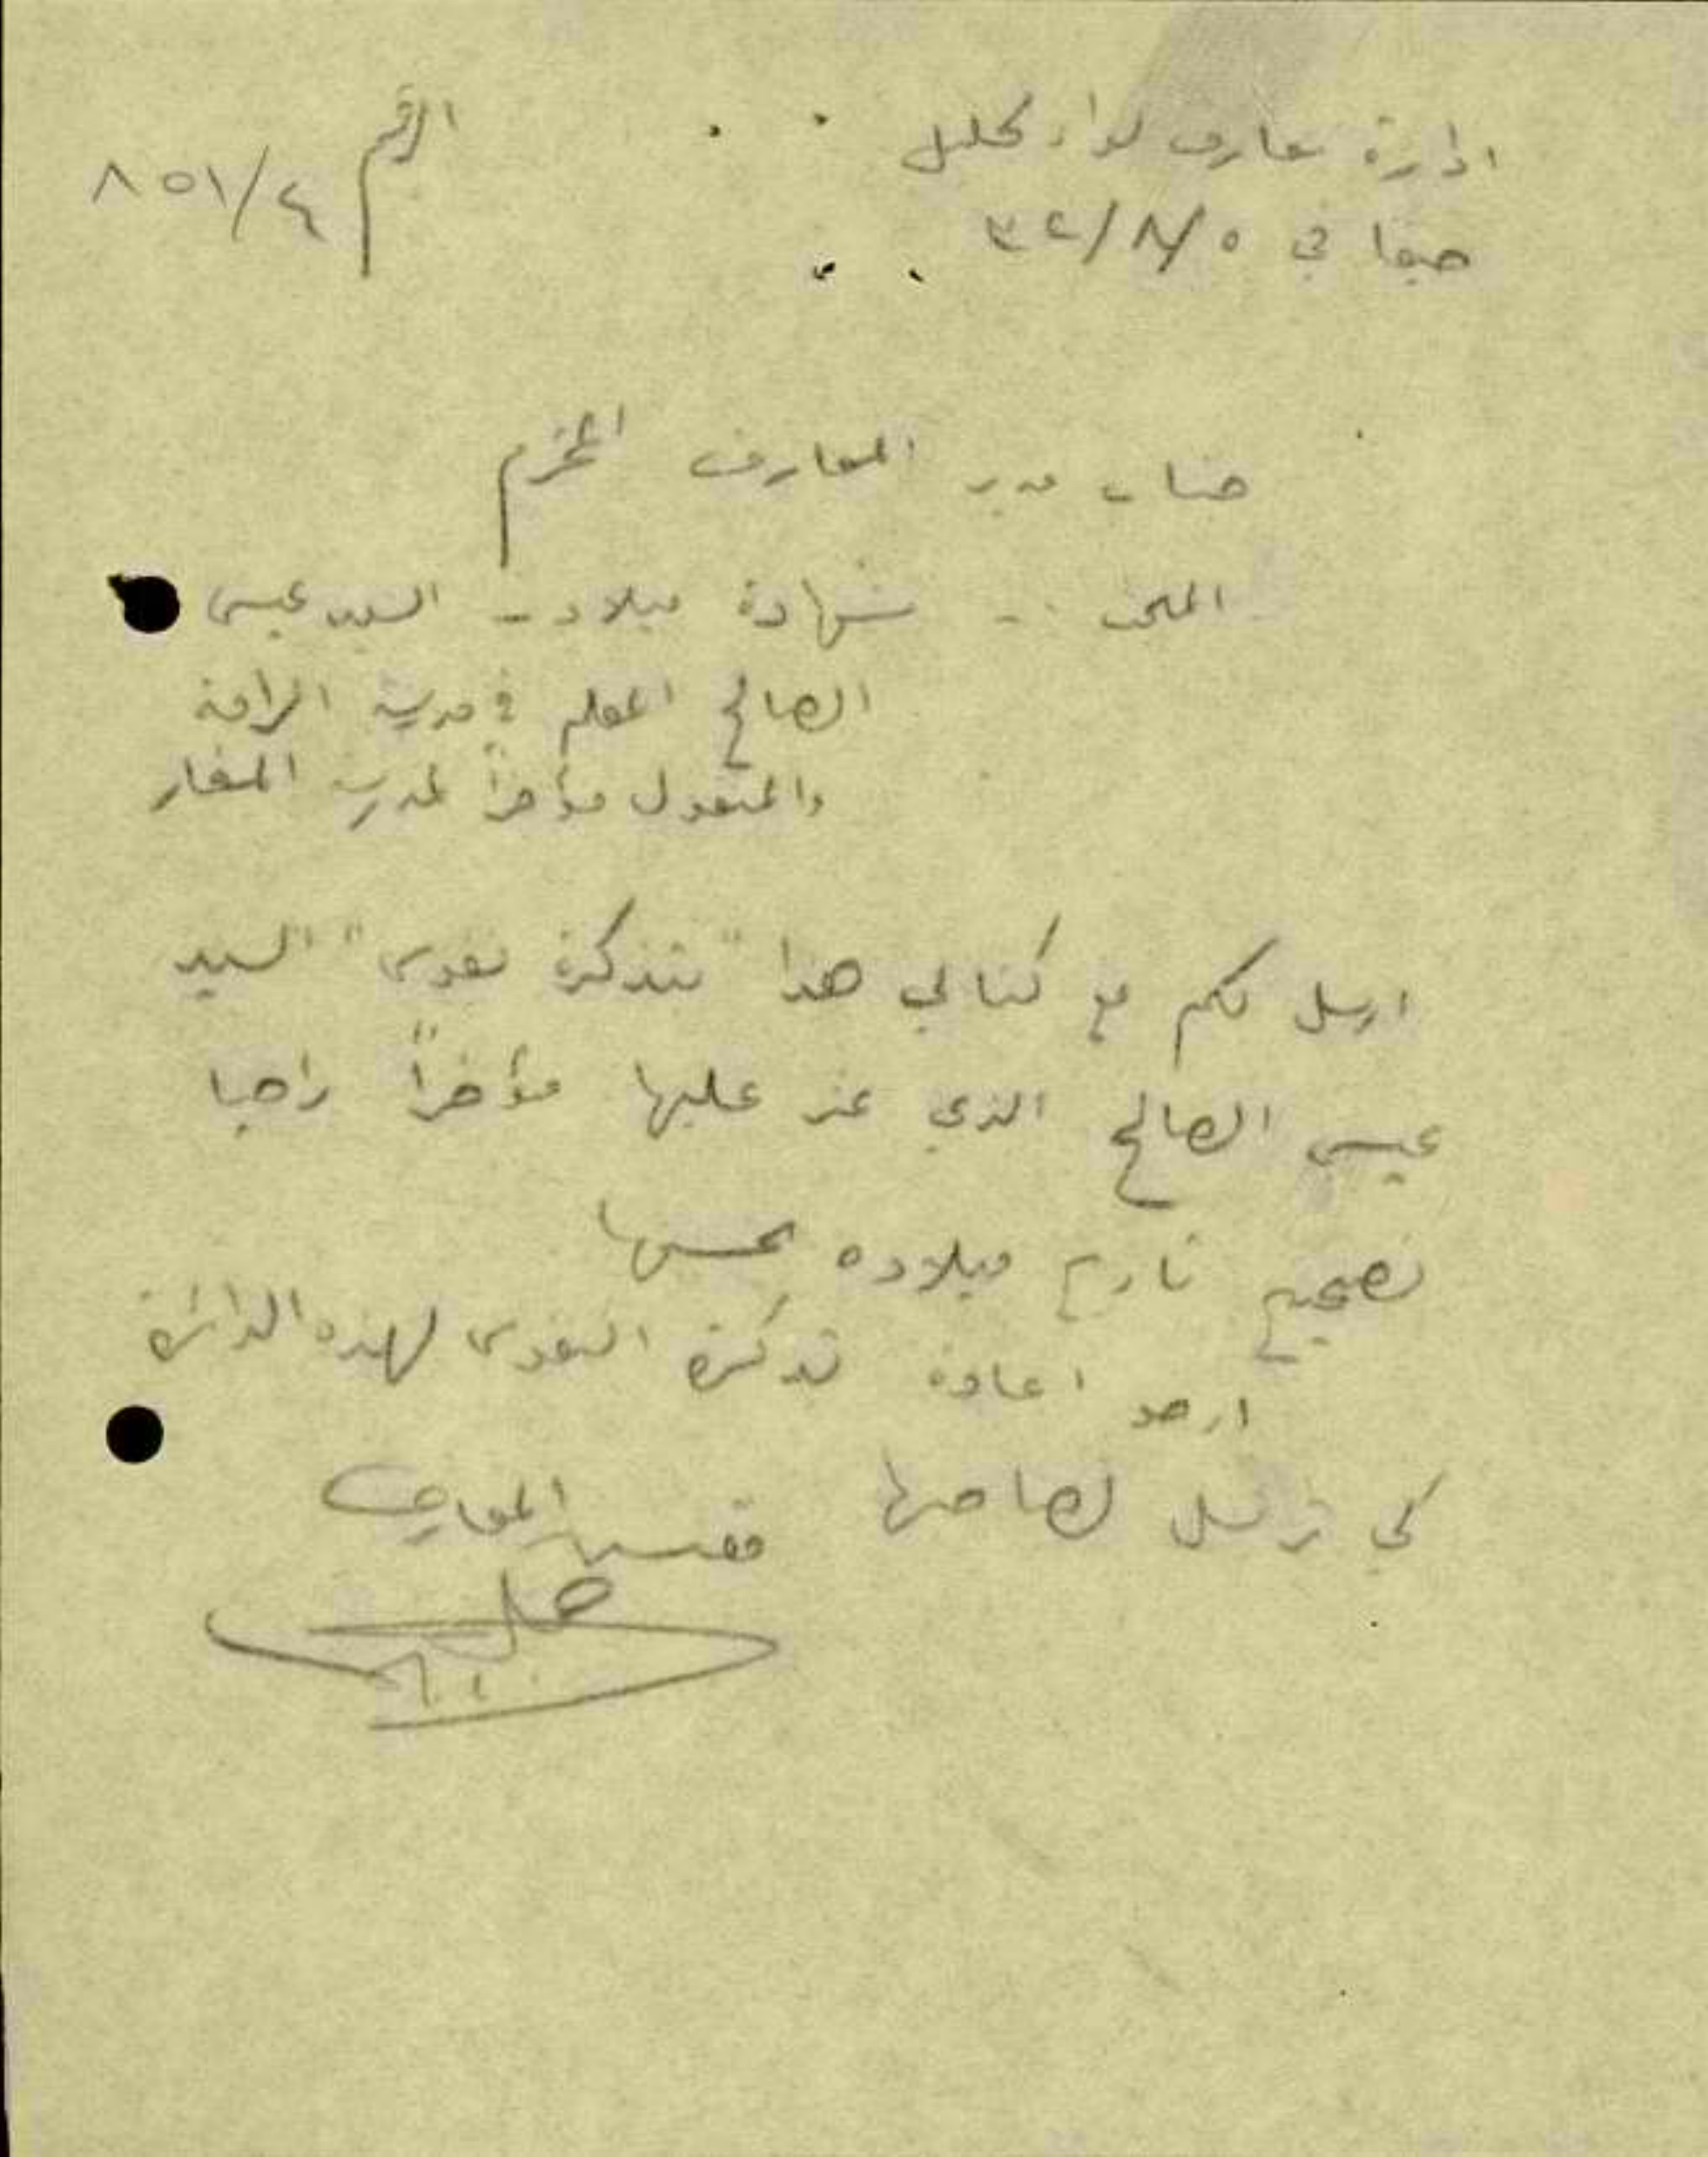 ادارة معارف لواء الجليل
الرقم ٨٥١/٤
حيفا في ٥/٨/٣٢
جناب مدير المعارف المحترم
الملحف - شهادة ميلاد - السيد عيسى
الصالح المعلم في مدرسة الرامة
والمنقول مؤخراً لمدرسة المغار
ارسل لكم مع كتابي هذا "تذكرة نفوس" السيد
عيسى الصالح الذي عثر عليها مؤخراً راجيا
تصحيح تاريخ ميلاده بحسبها
ارجو اعادة تذكرة النفوس لهذه الدائرة
كي ترسل لصاحبها
مفتش المعارف